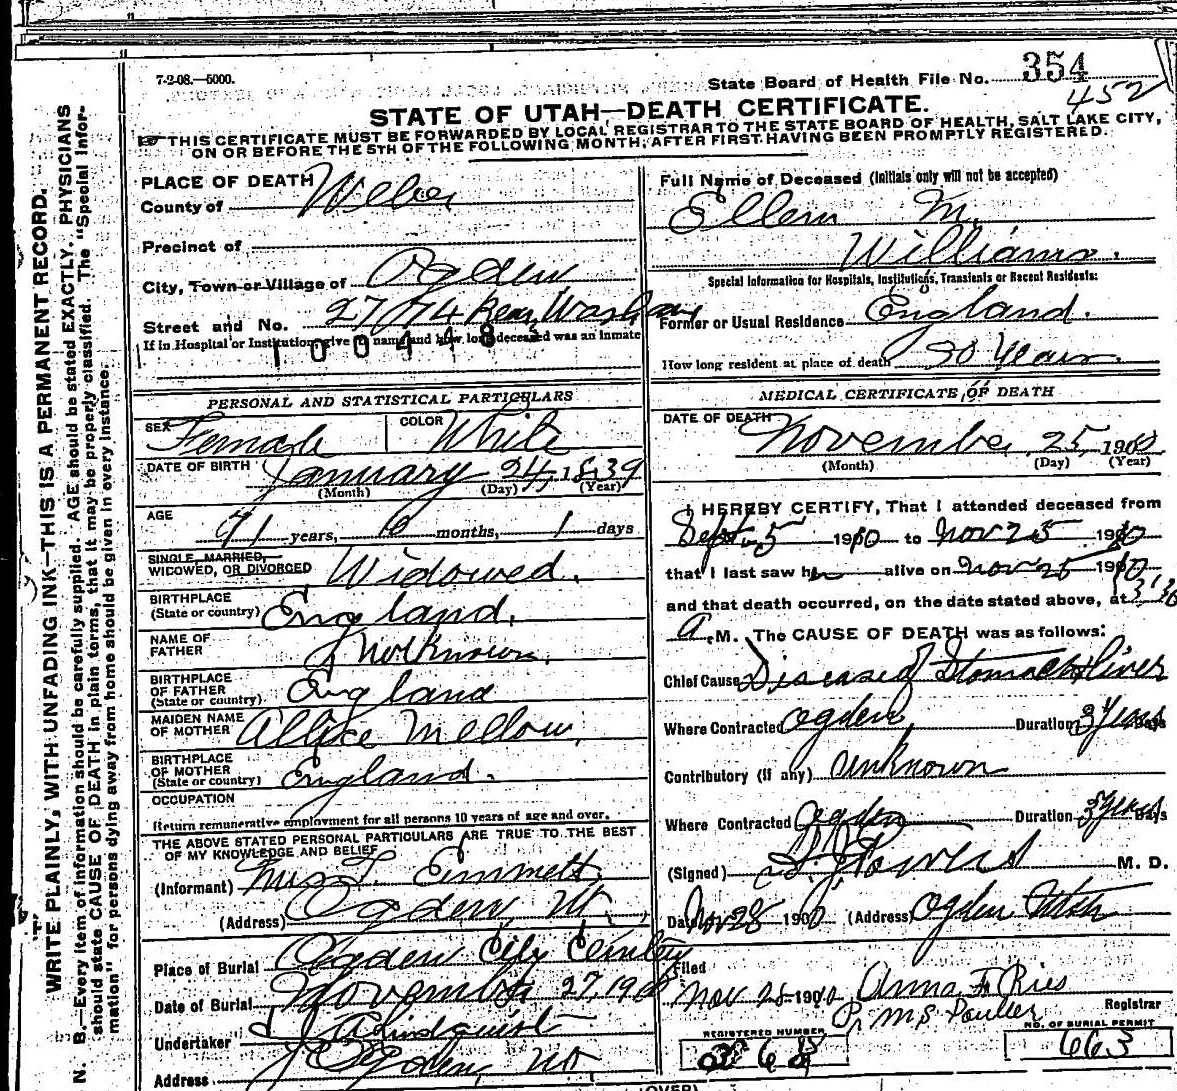 7-2-08.—6000.
State Board of Health File No. 354
452
STATE OF UTAH—DEATH CERTIFICATE.
THIS CERTIFICATE MUST BE FORWARDED BY LOCAL REGISTRAR TO THE STATE BOARD OF HEALTH, SALT LAKE CITY,
ON OR BEFORE THE 5TH OF THE FOLLOWING MONTH, AFTER FIRST HAVING BEEN PROMPTLY REGISTERED.
WRITE PLAINLY, WITH UNFADING INK—THIS IS A PERMANENT RECORD.
N. B.—Every item of information should be carefully supplied. AGE should be stated EXACTLY. PHYSICIANS
should state CAUSE OF DEATH in plain terms, that it may be properly classified. The "Special Infor-
mation" for persons dying away from home should be given in every instance.
PLACE OF DEATH
County of Weber
Precinct of
City, Town or Village of Ogden
Street and No. 2774 Rear Wash ave
If in Hospital or Institution, give its name and how long deceased was an inmate
Full Name of Deceased (Initials only will not be accepted)
Ellen M.
Williams.
Special Information for Hospitals, Institutions, Transients or Recent Residents:
Former or Usual Residence England.
How long resident at place of death 20 Years.
PERSONAL AND STATISTICAL PARTICULARS
SEX Female COLOR White
DATE OF BIRTH January 24, 1839
(Month) (Day) (Year)
AGE
71 years, 10 months, 1 days
SINGLE, MARRIED,
WIDOWED, OR DIVORCED Widowed.
BIRTHPLACE
(State or country) England.
NAME OF
FATHER Not Known.
BIRTHPLACE
OF FATHER
(State or country) England
MAIDEN NAME
OF MOTHER Allice Mellow.
BIRTHPLACE
OF MOTHER
(State or country) England.
OCCUPATION
Return remunerative employment for all persons 10 years of age and over.
THE ABOVE STATED PERSONAL PARTICULARS ARE TRUE TO THE BEST
OF MY KNOWLEDGE AND BELIEF
(Informant) Emmett
(Address) Ogden, Ut.
Place of Burial Ogden City Cemetery
Date of Burial November 27, 19
Undertaker Lindquist
Address Ogden, Ut
MEDICAL CERTIFICATE OF DEATH
DATE OF DEATH
November 25, 1900
(Month) (Day) (Year)
I HEREBY CERTIFY, That I attended deceased from
Sept 5 1910 to Nov 25 1910
that I last saw her alive on Nov 25 1910
and that death occurred, on the date stated above, at 3:30
A. M. The CAUSE OF DEATH was as follows:
Chief Cause Disease of Stomach & Liver
Where Contracted Ogden Duration 3 Years Days
Contributory (if any) Unknown
Where Contracted Ogden Duration 3 Years Days
(Signed) M. D.
Date Nov 28 1900 (Address) Ogden Utah
Filed
Nov 28 1910 Anna F Ries
Registrar
REGISTERED NUMBER
NO. OF BURIAL PERMIT
663
(OVER)